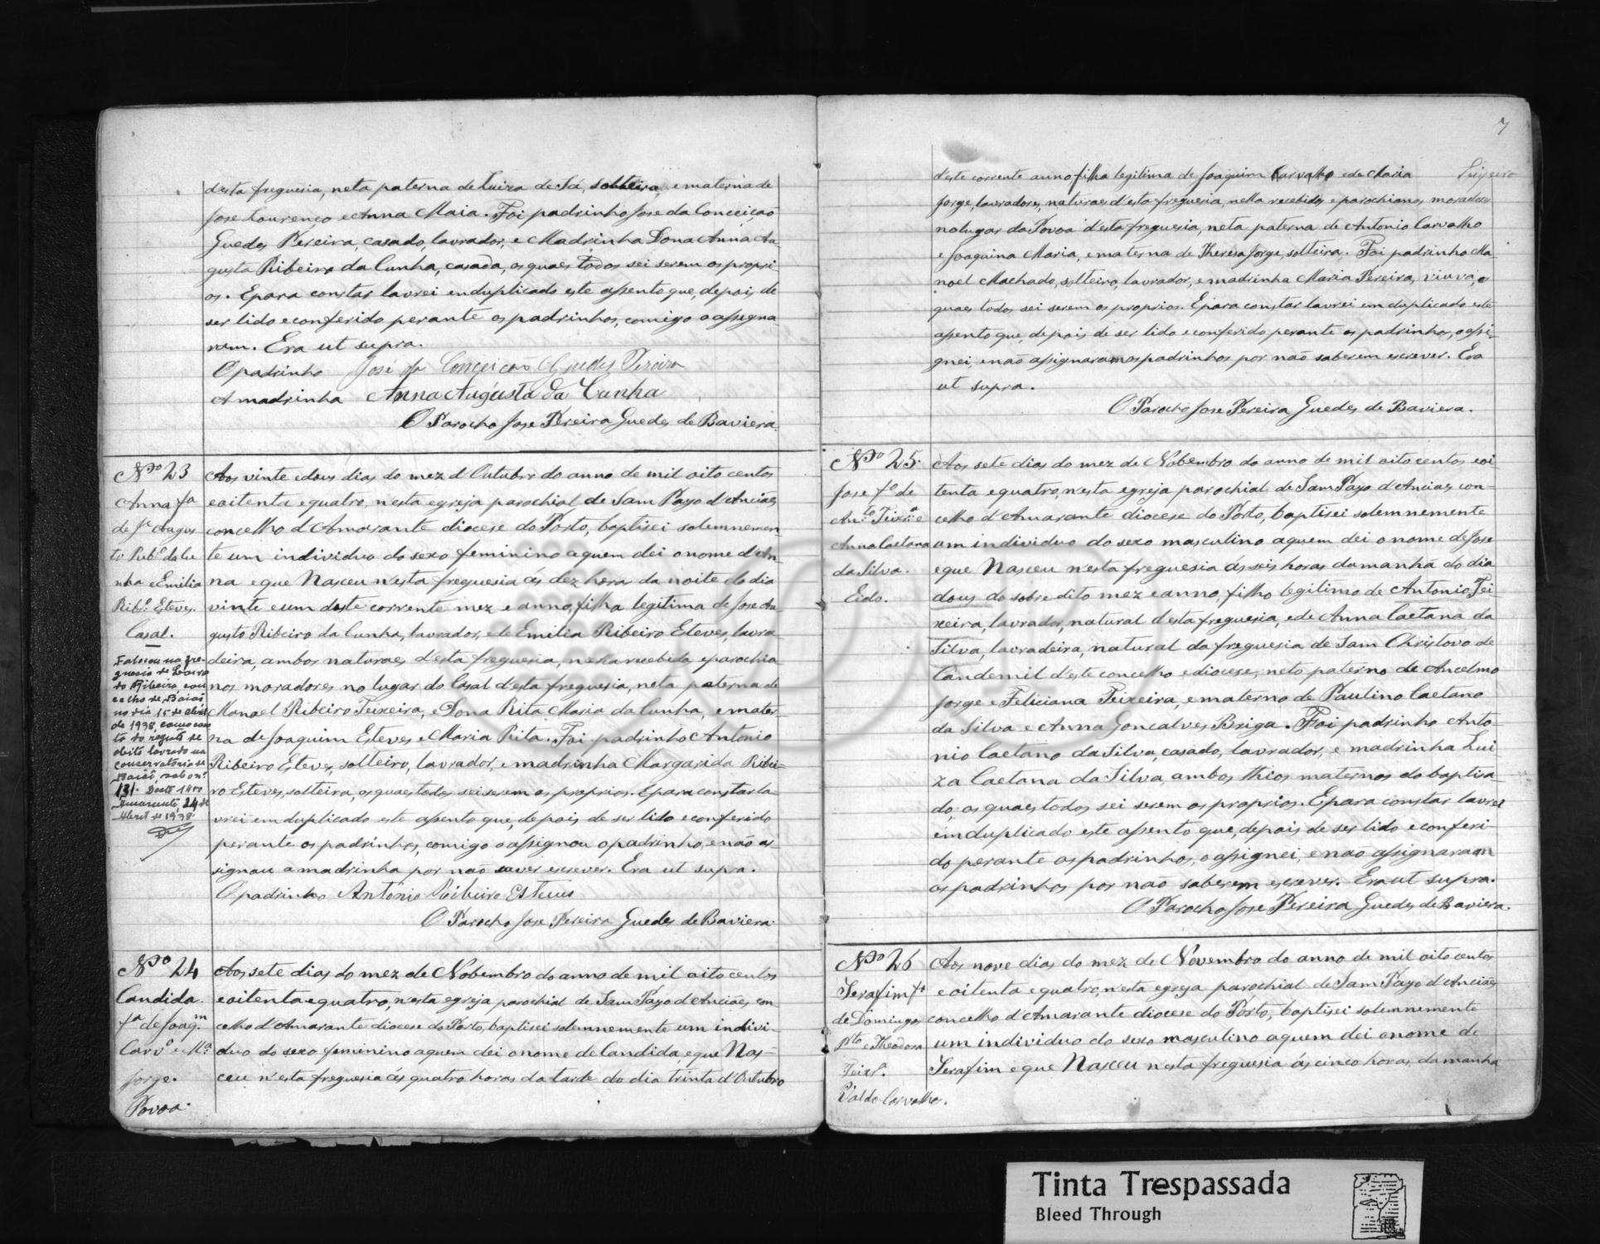 d'esta freguesia, neta paterna de Luiza de Sá, solteira, e materna de
Jose Lourenço e Anna Maia. Foi padrinho Jose da Conceição
Guedes Pereira, casado, lavrador, e Madrinha Dona Anna Au
gusta Ribeiro da Cunha, casada, os quaes todos sei serem os propri
os. E para constar lavrei em duplicado este assento que, depois de
ser lido e conferido perante os padrinhos, comigo o assigna
ram. Era ut supra.
O padrinho José da Conceicão Guedes Pereira
A madrinha Anna Augusta da Cunha
O Parocho Jose Pereira Guedes de Baviera.
Nº 23
Anna fª
de Jº Augus
to Ribº da Cu
nha e Emilia
Ribº Esteves.
Casal.
Faleceu na fre-
guesia de
do Ribeiro, con
celho de Baião
no dia 15 de Abril
de 1938, como cons
ta do
obito lavrado na
conservatória de
Baião, sob o nº
131.
Amarante, 24 de
Abril de 1938
Aos vinte e dous dias do mez d'Outubro do anno de mil oito centos
e oitenta e quatro, n'esta egreja parochial de Sam Payo d'Anciães,
concelho d'Amarante diocese do Porto, baptisei solemnemen
te um individuo do sexo feminino a quem dei o nome d'An
na e que Nasceu n'esta freguesia ás dez hora da noite do dia
vinte e um deste corrente mez e anno, filha legitima de Jose Au
gusto Ribeiro da Cunha, lavrador, e de Emilia Ribeiro Esteves, lavra
deira, ambos naturaes d'esta freguesia, n'ella recebidos e parochia
nos moradores no lugar do Casal d'esta freguesia, neta paterna de
Manoel Ribeiro Teixeira, e Dona Rita Maria da Cunha, e mater
na de Joaquim Esteves e Maria Rita. Foi padrinho Antonio
Ribeiro Esteves, solteiro, lavrador, e madrinha Margarida Ribei-
ro Esteves, solteira, os quaes todos sei serem os proprios. E para constar la
vrei em duplicado este assento que, depois de ser lido e conferido
perante os padrinhos, comigo o assignou o padrinho, e não a
signou a madrinha por não saver escrever. Era ut supra.
O padrinho António Ribeiro Esteves
O Parocho Jose Pereira Guedes de Baviera.
Nº 24
Candida
fª de Joaqm
Carvº e Mª
Jorge.
Povoa.
Aos sete dias do mez de Nobembro do anno de mil oito centos
e oitenta e quatro, n'esta egreja parochial de Sam Payo d'Anciães, con
celho d'Amarante diocese do Porto, baptisei solemnemente um indivi-
duo do sexo feminino a quem dei o nome de Candida e que Nas-
ceu n'esta freguesia ás quatro horas da tarde do dia trinta d'Outubro
7
deste corrente anno filha legitima de Joaquim Carvalho e de Maria
Jorge, lavradores, naturaes d'esta freguesia, nella recebidos e parochianos, moradores
no lugar da Povoa d'esta freguesia, neta paterna de Antonio Carvalho
e Joaquina Maria, e materna de Theresa Jorge, solteira. Foi padrinho Ma
noel Machado, solteiro, lavrador, e madrinha Maria Pereira, viuva, os
quaes todos sei serem os proprios. E para constar lavrei em duplicado este
assento que, depois de ser lido e conferido perante os padrinhos, o assi-
gnei, e não assignaram os padrinhos por não saberem escrever. Era
ut supra.
O Parocho Jose Pereira Guedes de Baviera.
Nº 25.
Jose fº de
Antº Teixrª e
Anna Caetana
da Silva.
Eido.
Aos sete dias do mez de Nobembro do anno de mil oito centos e oi
tenta e quatro, n'esta egreja parochial de Sam Payo d'Anciães con-
celho d'Amarante diocese do Porto, baptisei solemnemente
um individuo do sexo masculino a quem dei o nome de Jose
e que Nasceu n'esta freguesia ás seis horas da manhã do dia
dous do sobre dito mez e anno, filho legitimo de Antonio Tei
xeira, lavrador, natural d'esta freguesia, e de Anna Caetana da
Silva, lavradeira, natural da freguesia de Sam Christovo de
Candemil d'este concelho e diocese, neto paterno de Ancelmo
Jorge e Feliciana Teixeira, e materno de Paulino Caetano
da Silva e Anna Goncalves Briga. Foi padrinho Anto-
nio Caetano da Silva, casado, lavrador, e madrinha Lui
za Caetana da Silva, ambos thios maternos do baptisa
do, os quaes todos sei serem os proprios. E para constar lavrei
em duplicado este assento que, depois de ser lido e conferi
do perante os padrinhos, o assignei, e nao assignaram
os padrinhos por não saberem escrever. Era ut supra.
O Parocho Jose Pereira Guedes de Baviera.
Nº 26
Serafim fº
de Domingos
Ptº e Theodora
Teixrª.
Val do Carvalho.
Aos nove dias do mez de Novembro do anno de mil oito centos
e oitenta e quatro, n'esta egreja parochial de Sam Payo d'Anciães
concelho d'Amarante diocese do Porto, baptisei solemnemente
um individuo do sexo masculino a quem dei o nome de
Serafim e que Nasceu n'esta freguesia ás cinco horas da manha
Tinta Trespassada
Bleed Through